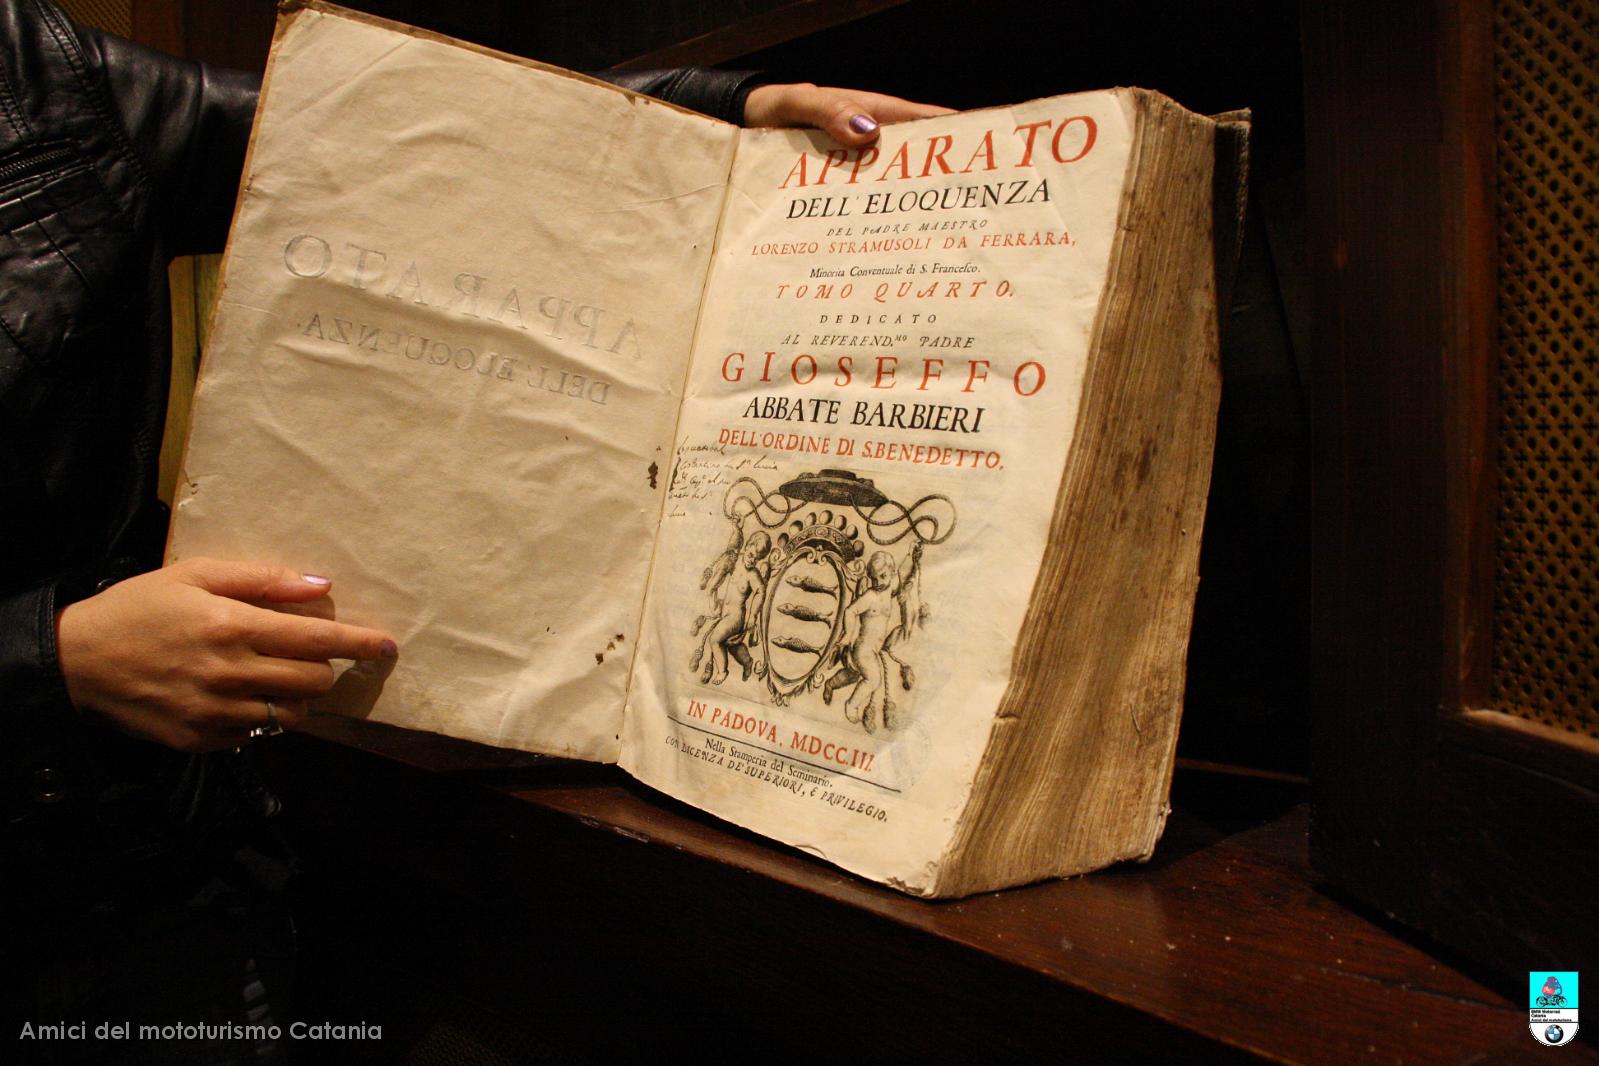 APPARATO
DELL'ELOQUENZA.
APPARATO
DELL'ELOQUENZA
DEL PADRE MAESTRO
LORENZO STRAMUSOLI DA FERRARA,
Minorita Conventuale di S. Francesco.
TOMO QUARTO.
DEDICATO
AL REVEREND.MO PADRE
GIOSEFFO
ABBATE BARBIERI
DELL'ORDINE DI S.BENEDETTO.
IN PADOVA. MDCC.III.
Nella Stamperia del Seminario.
CON LICENZA DE' SUPERIORI, E PRIVILEGIO.
Amici del mototurismo Catania
BMW Motorrad
Catania
Amici del mototurismo